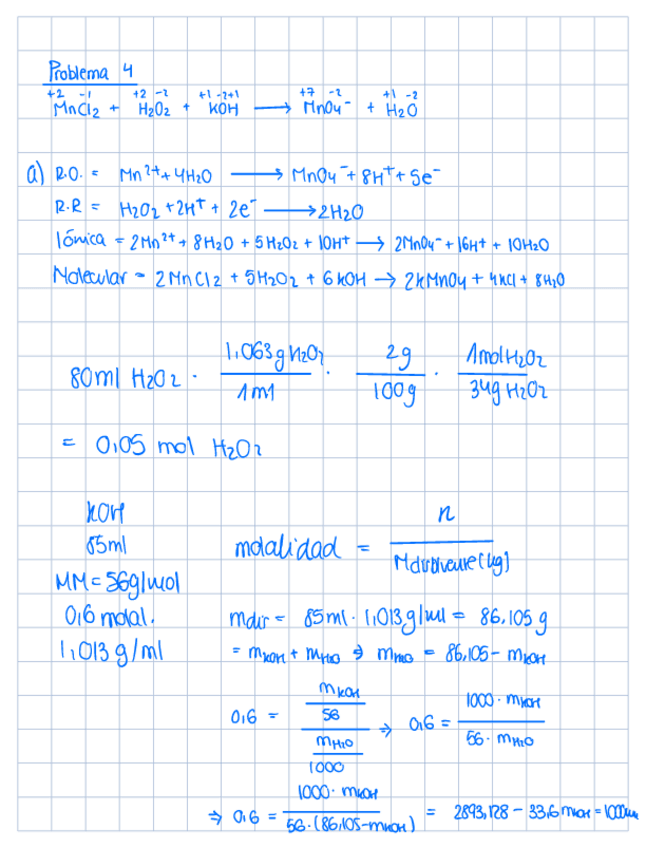 Problema 4
+2 -1 +2 -2 +1 -2+1 +7 -2 +1 -2
MnCl2 + H2O2 + KOH ⟶ MnO4⁻ + H2O
a) R.O. = Mn²⁺ + 4H2O ⟶ MnO4⁻ + 8H⁺ + 5e⁻
R.R = H2O2 + 2H⁺ + 2e⁻ ⟶ 2H2O
Iónica = 2Mn²⁺ + 8H2O + 5H2O2 + 10H⁺ ⟶ 2MnO4⁻ + 16H⁺ + 10H2O
Molecular = 2MnCl2 + 5H2O2 + 6KOH → 2KMnO4 + 4KCl + 8H2O
80ml H2O2 · 1,063g H2O2 / 1ml · 2g / 100g · 1mol H2O2 / 34g H2O2
= 0,05 mol H2O2
KOH
85ml
MM = 56g/mol
0,6 molal.
1,013 g/ml
molalidad = n / Mdisolvente (kg)
mdis = 85ml · 1,013g/ml = 86,105 g
= mKOH + mH2O ⇒ mH2O = 86,105 - mKOH
0,6 = (mKOH / 56) / (mH2O / 1000) ⇒ 0,6 = 1000 · mKOH / 56 · mH2O
⇒ 0,6 = 1000 · mKOH / 56 · (86,105 - mKOH) = 2893,128 - 33,6 mKOH = 1000